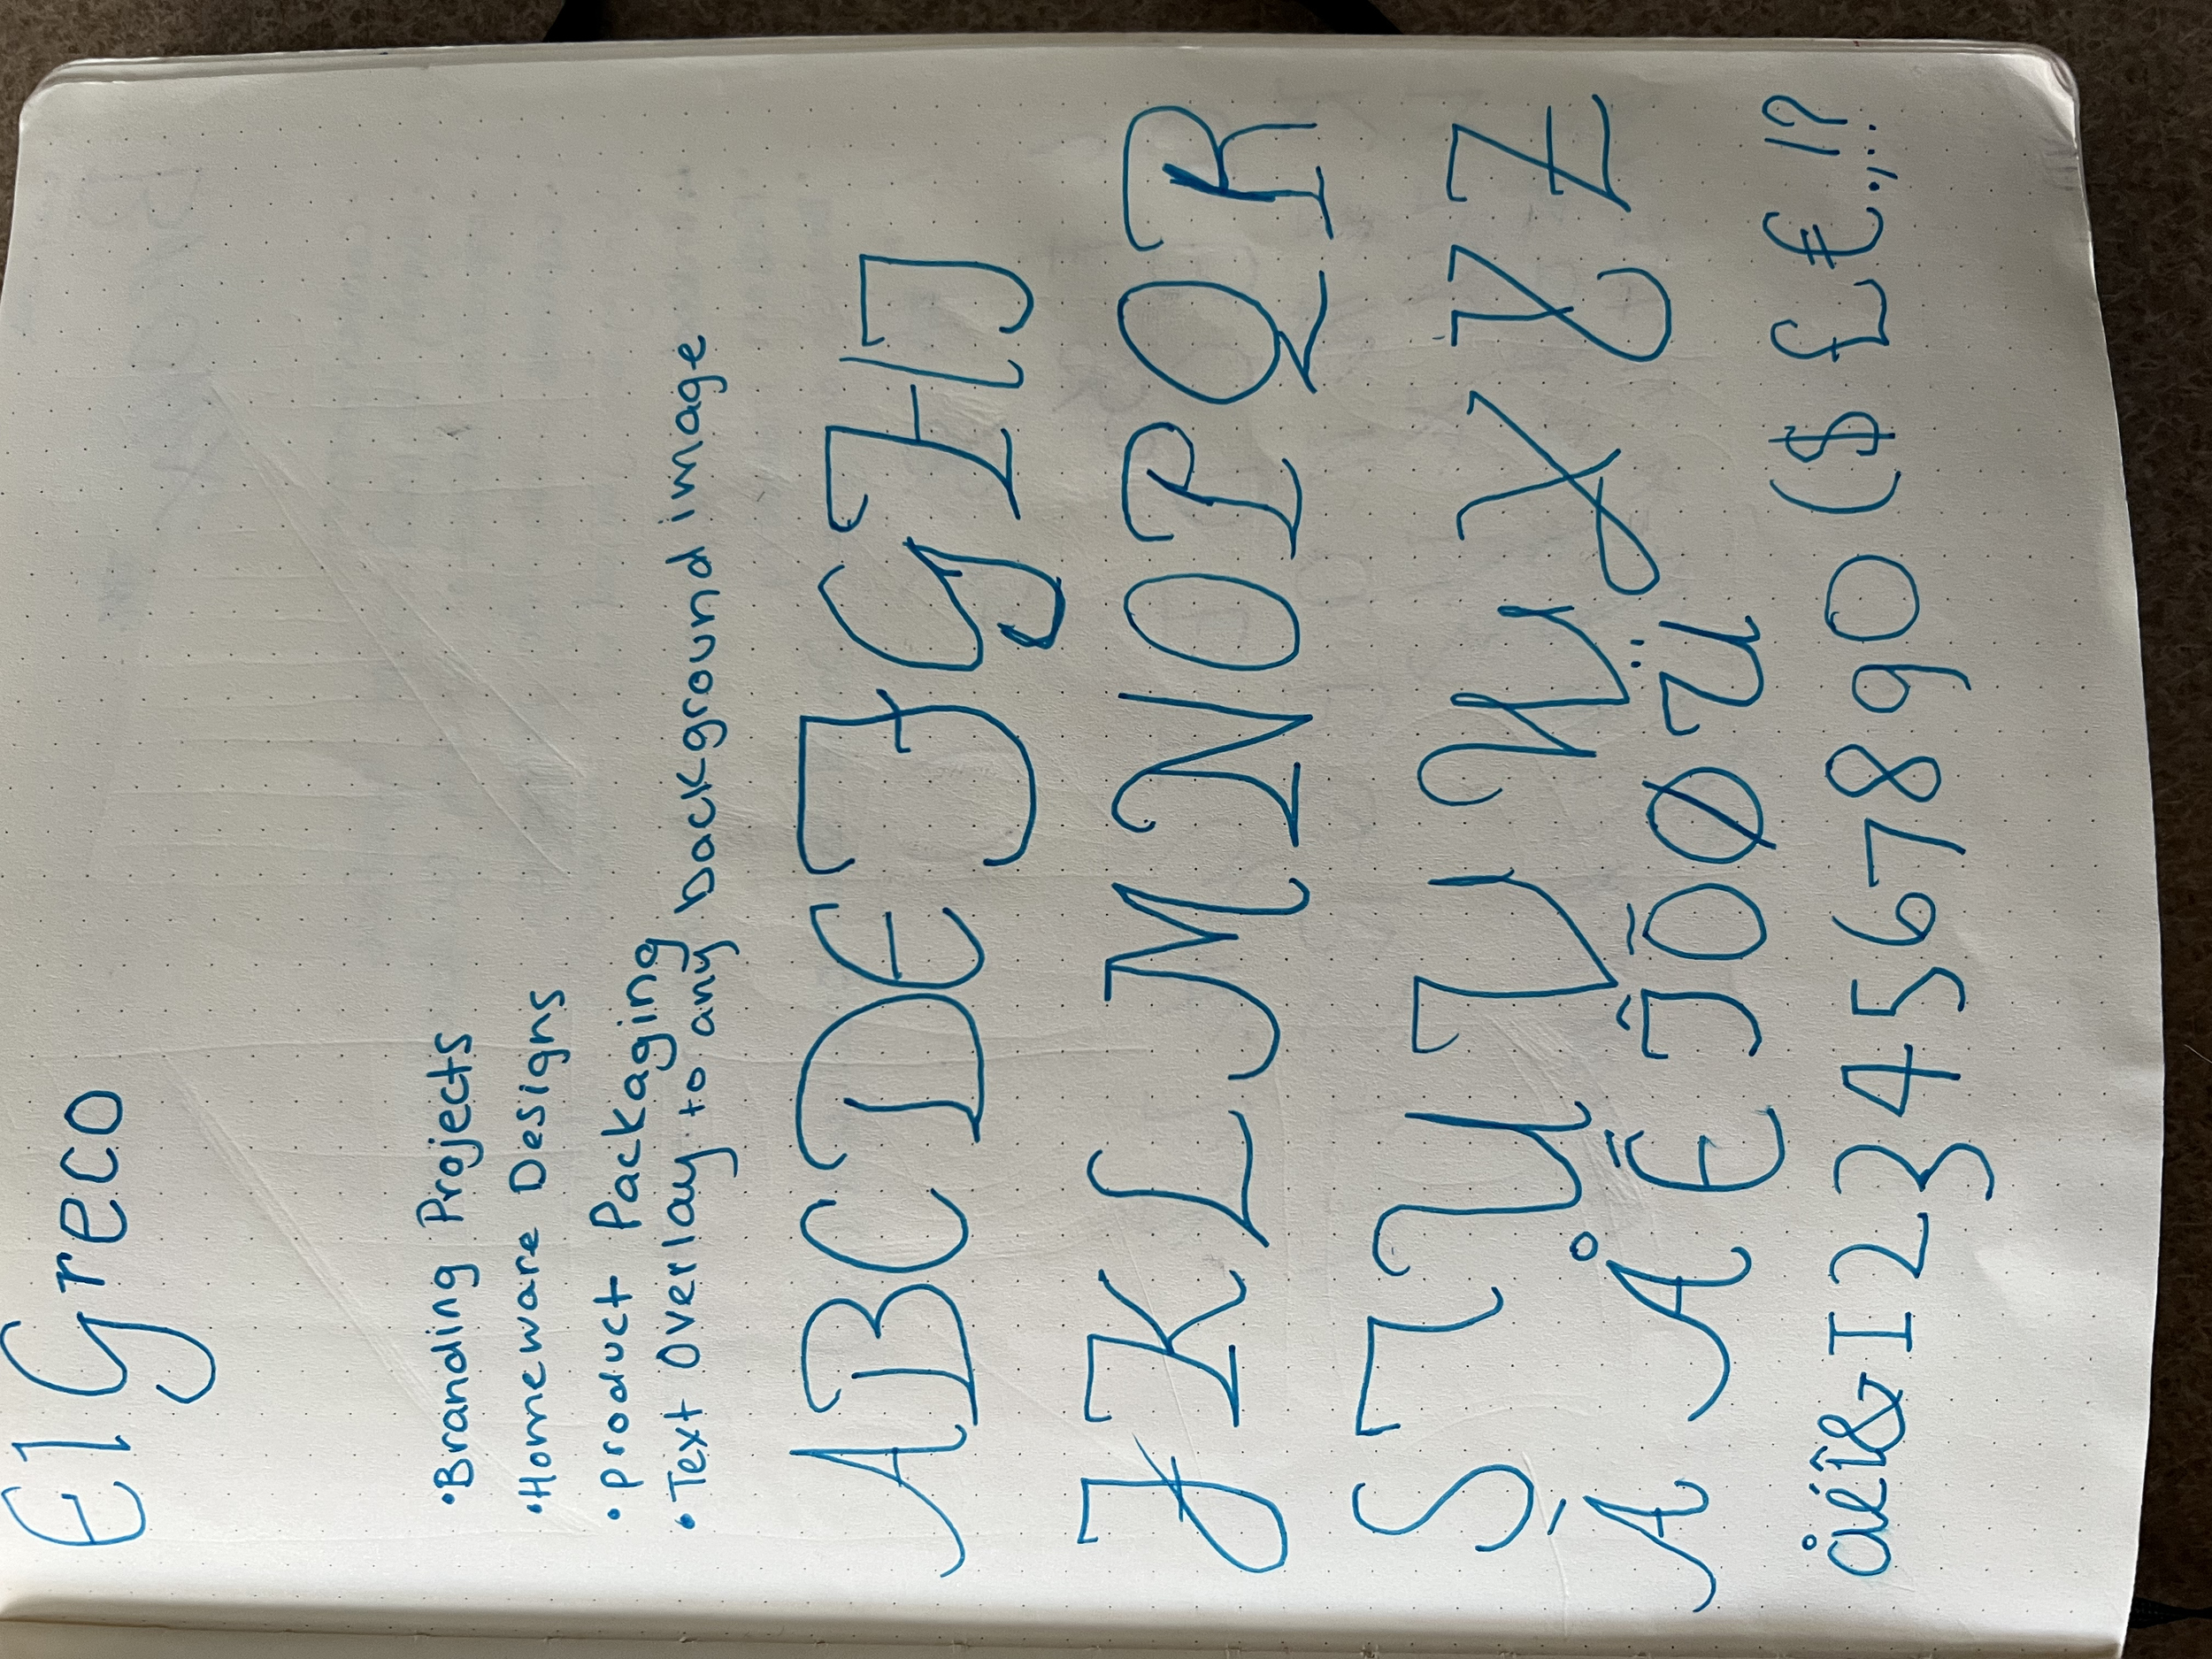 El Greco
•Branding Projects
•Homeware Designs
•product Packaging
•Text Overlay to any background image
ABCDEFGHIJ
JKLMNOPQR
STUVWXYZ
ÀÅĒĴŌØÜ
åéî&1234567890($£€.,!?